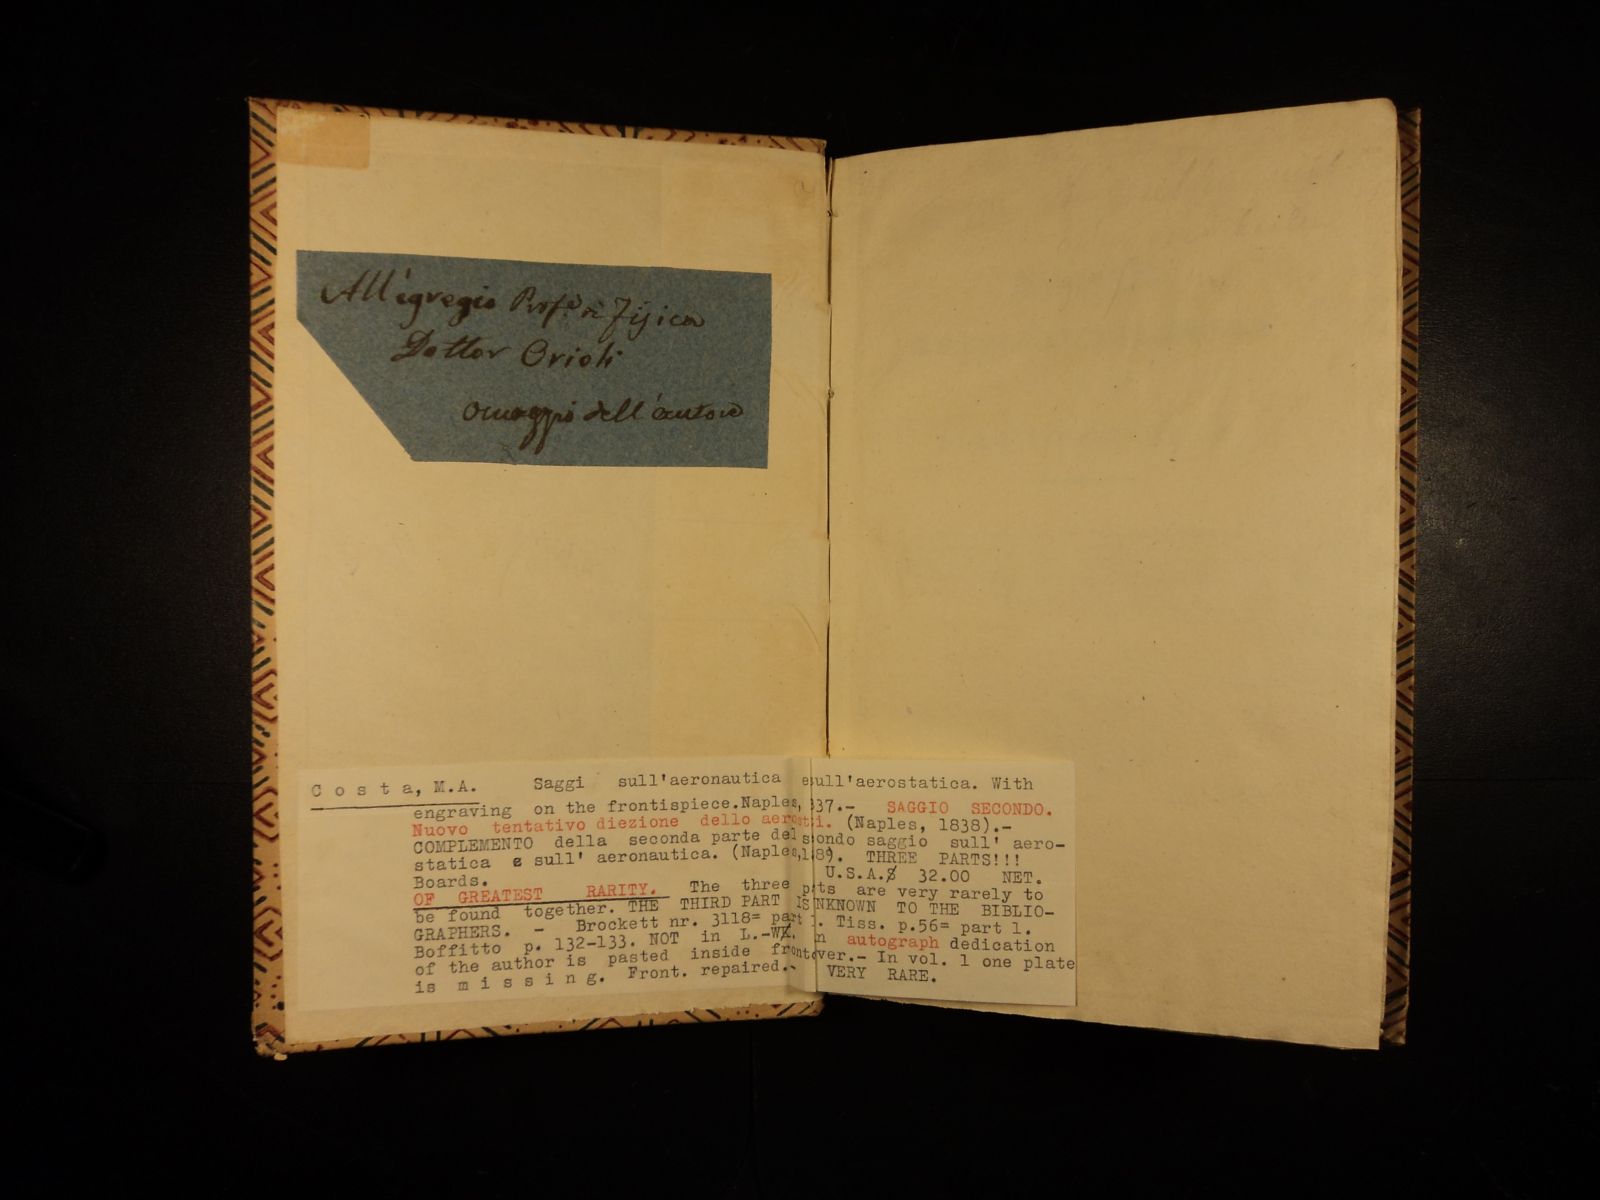 All'egregio Prof. di Fisica
Dottor Orioli
omaggio dell'autore
Costa, M.A. Saggi sull'aeronautica e sull'aerostatica. With
engraving on the frontispiece.Naples, 337.- SAGGIO SECONDO.
Nuovo tentativo diezione dello aerostti. (Naples, 1838).-
COMPLEMENTO della seconda parte del sondo saggio sull' aero-
statica e sull' aeronautica. (Naples,189). THREE PARTS!!!
Boards. U.S.A.$ 32.00 NET.
OF GREATEST RARITY. The three pts are very rarely to
be found together. THE THIRD PART IS NKNOWN TO THE BIBLIO-
GRAPHERS. - Brockett nr. 3118= part 1. Tiss. p.56= part 1.
Boffitto p. 132-133. NOT in L.-W. n autograph dedication
of the author is pasted inside frontver.- In vol. 1 one plate
is missing. Front. repaired.- VERY RARE.